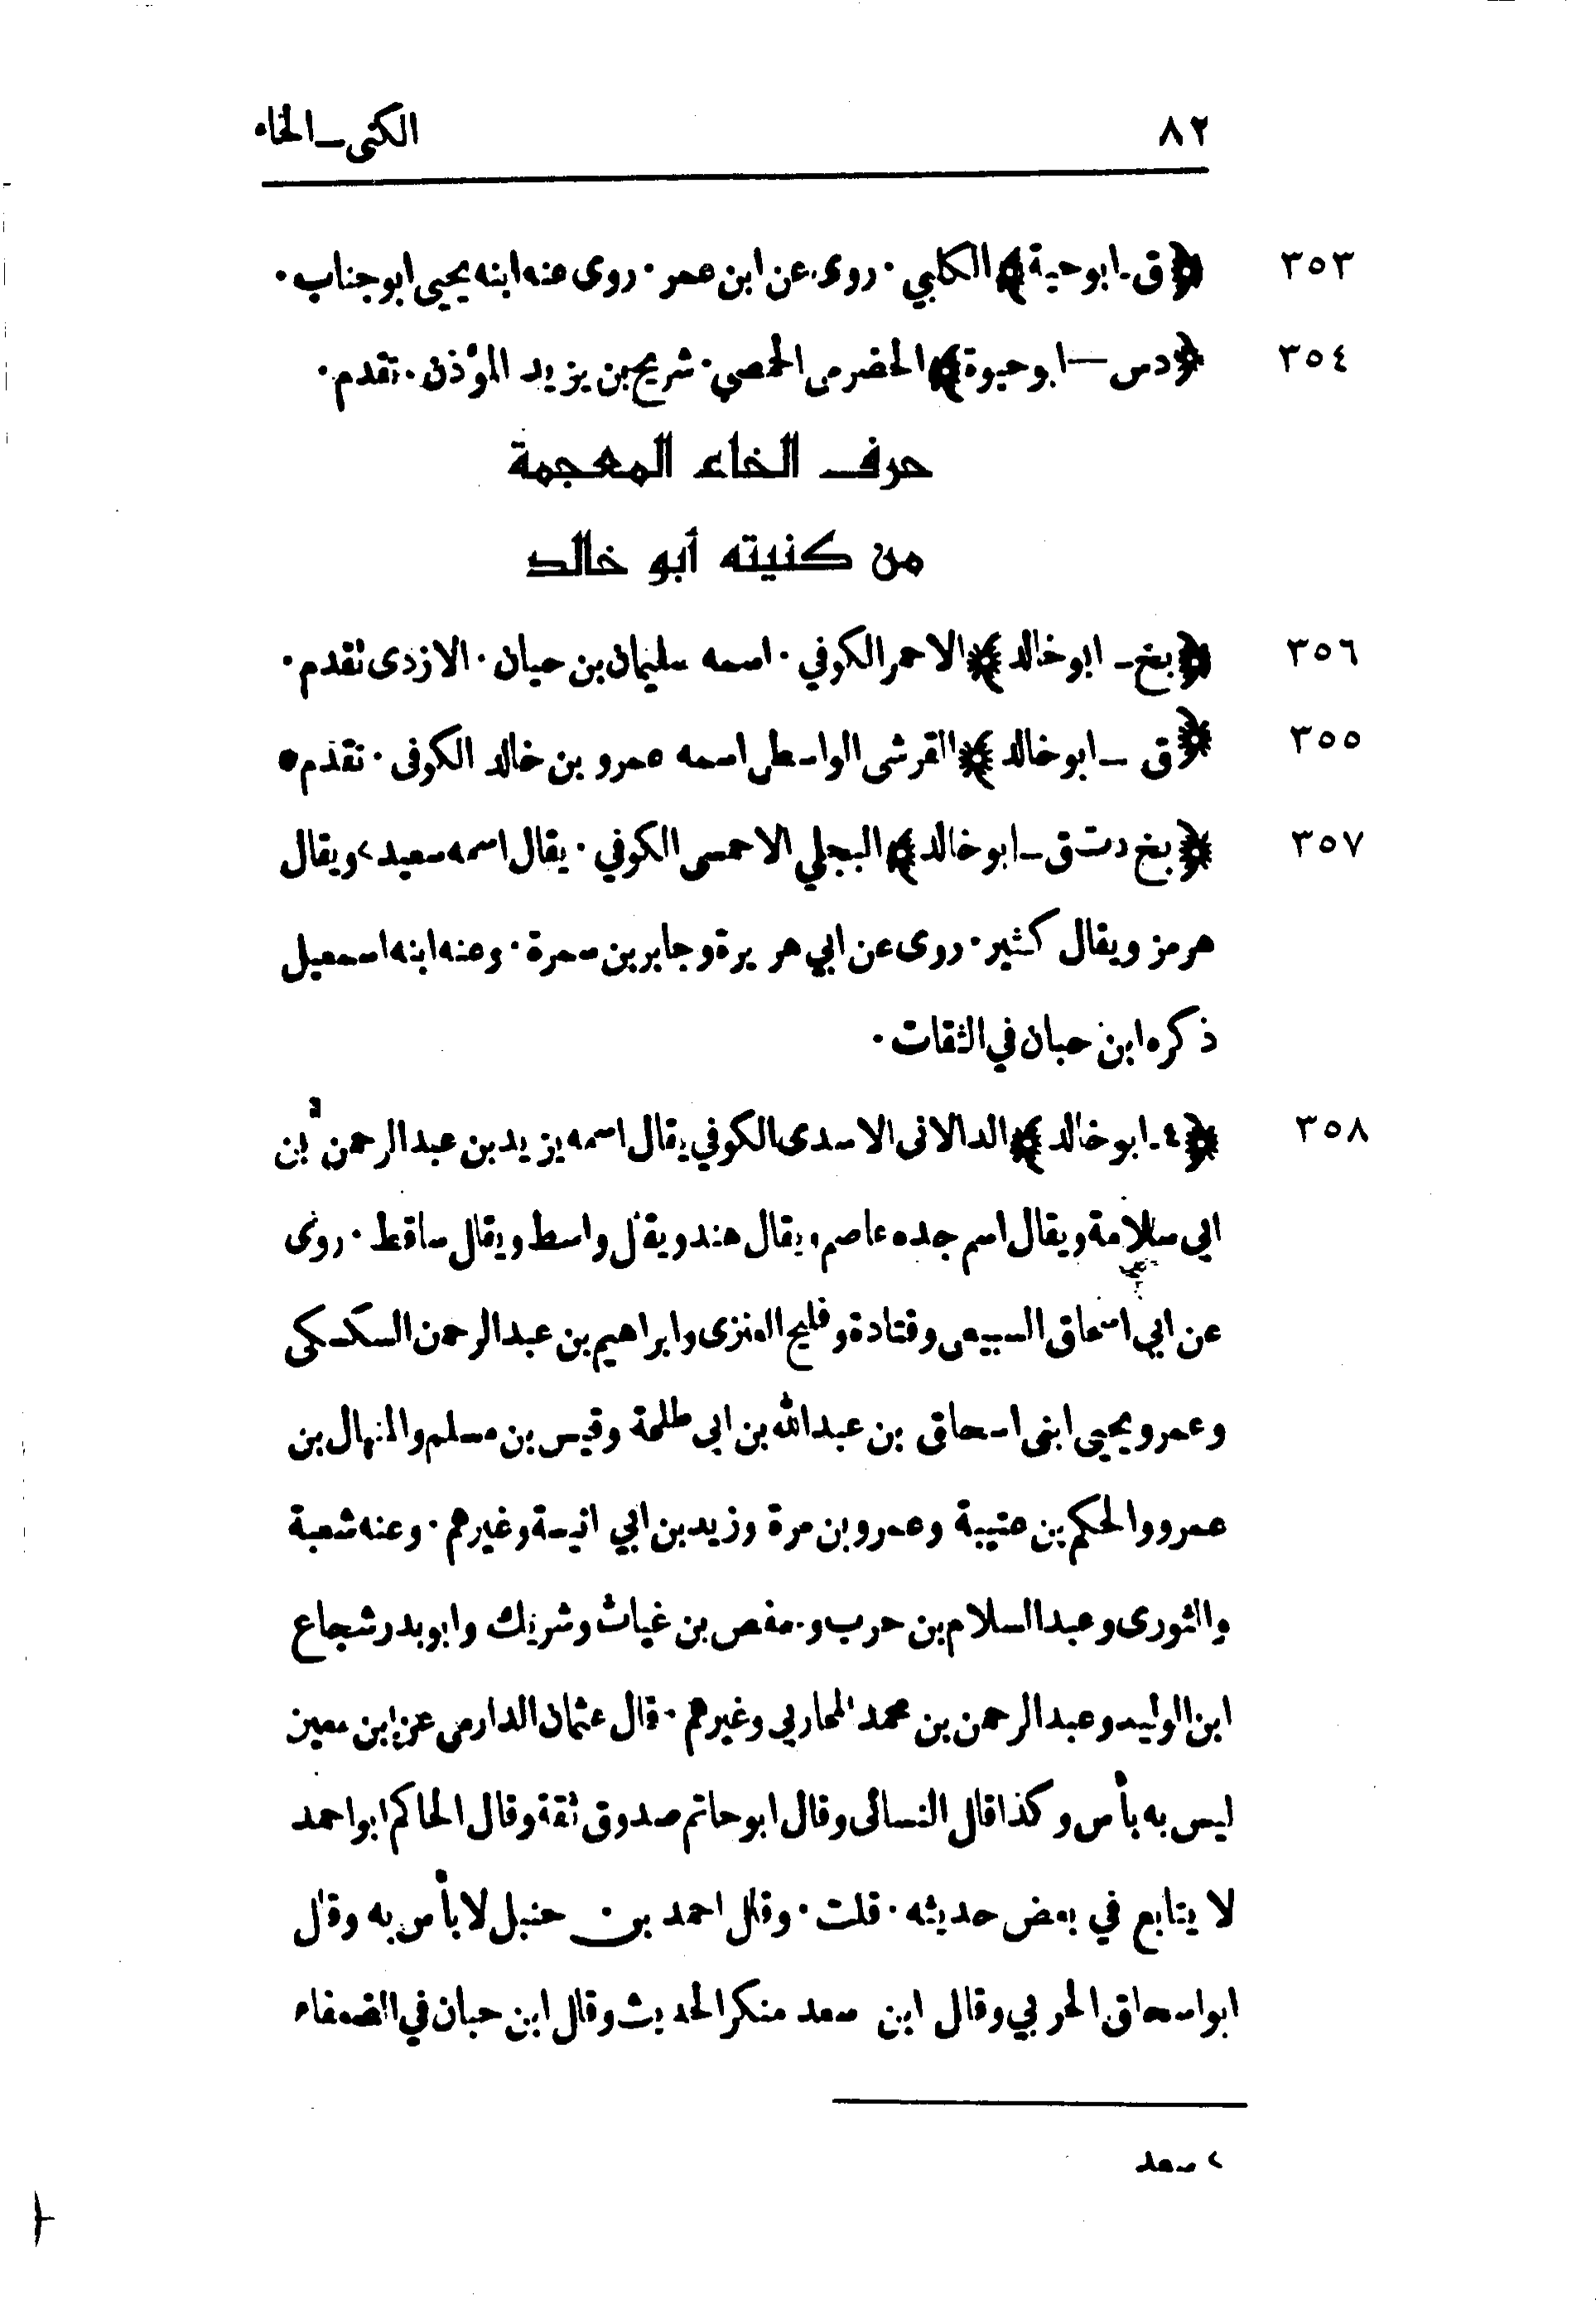 ٨٢
الكنى ـ الخاء
٣٥٣ ﴿ ق ـ ابو حية ﴾ الكلبي . روى عن ابن عمر . روى عنه ابنه يحيى ابو جناب .
٣٥٤ ﴿ د س — ابو حيوة ﴾ الحضرمى الحمصي . شريح بن يزيد المؤذن . تقدم .
حرف الخاء المعجمة
من كنيته أبو خالد
٣٥٦ ﴿ بخ ـ ابو خالد ﴾ الاحمر الكوفي . اسمه سليمان بن حيان . الازدى تقدم .
٣٥٥ ﴿ ق ـ ابو خالد ﴾ القرشى الواسطى اسمه عمرو بن خالد الكوفى . تقدم ٥
٣٥٧ ﴿ بخ د ت ق ـ ابو خالد ﴾ البجلي الاحمسى الكوفي . يقال اسمه سعيد > ويقال
هرمز ويقال كثير . روى عن ابي هريرة وجابر بن سمرة . وعنه ابنه اسمعيل
ذكره ابن حبان في الثقات .
٣٥٨ ﴿ ٤ ـ ابو خالد ﴾ الدالانى الاسدى الكوفي يقال اسمه يزيد بن عبد الرحمن بن
ابى سلامة ويقال اسم جده عاصم ويقال هند ويقال واسط ويقال ساقط . روى
عن ابي اسحاق السبيعى وقتادة وفليح العنزى وابراهيم بن عبد الرحمن السكسكى
وعمرو يحيى ابنى اسحاق بن عبد الله بن ابى طلحة وقيس بن مسلم والمنهال بن
عمرو والحكم بن عتيبة وعمرو بن مرة وزيد بن ابي انيسة وغيرهم . وعنه شعبة
والثورى وعبد السلام بن حرب وحفص بن غياث وشريك وابو بدر شجاع
ابن الوليد وعبد الرحمن بن محمد المحاربي وغيرهم . قال عثمان الدارمى عن ابن معين
ليس به بأس وكذا قال النسائى وقال ابو حاتم صدوق ثقة وقال الحاكم ابو احمد
لا يتابع في بعض حديثه . قلت . وقال احمد بن حنبل لا بأس به وقال
ابو اسحاق الحربي وقال ابن سعد منكر الحديث وقال ابن حبان في الضعفاء
> سعد